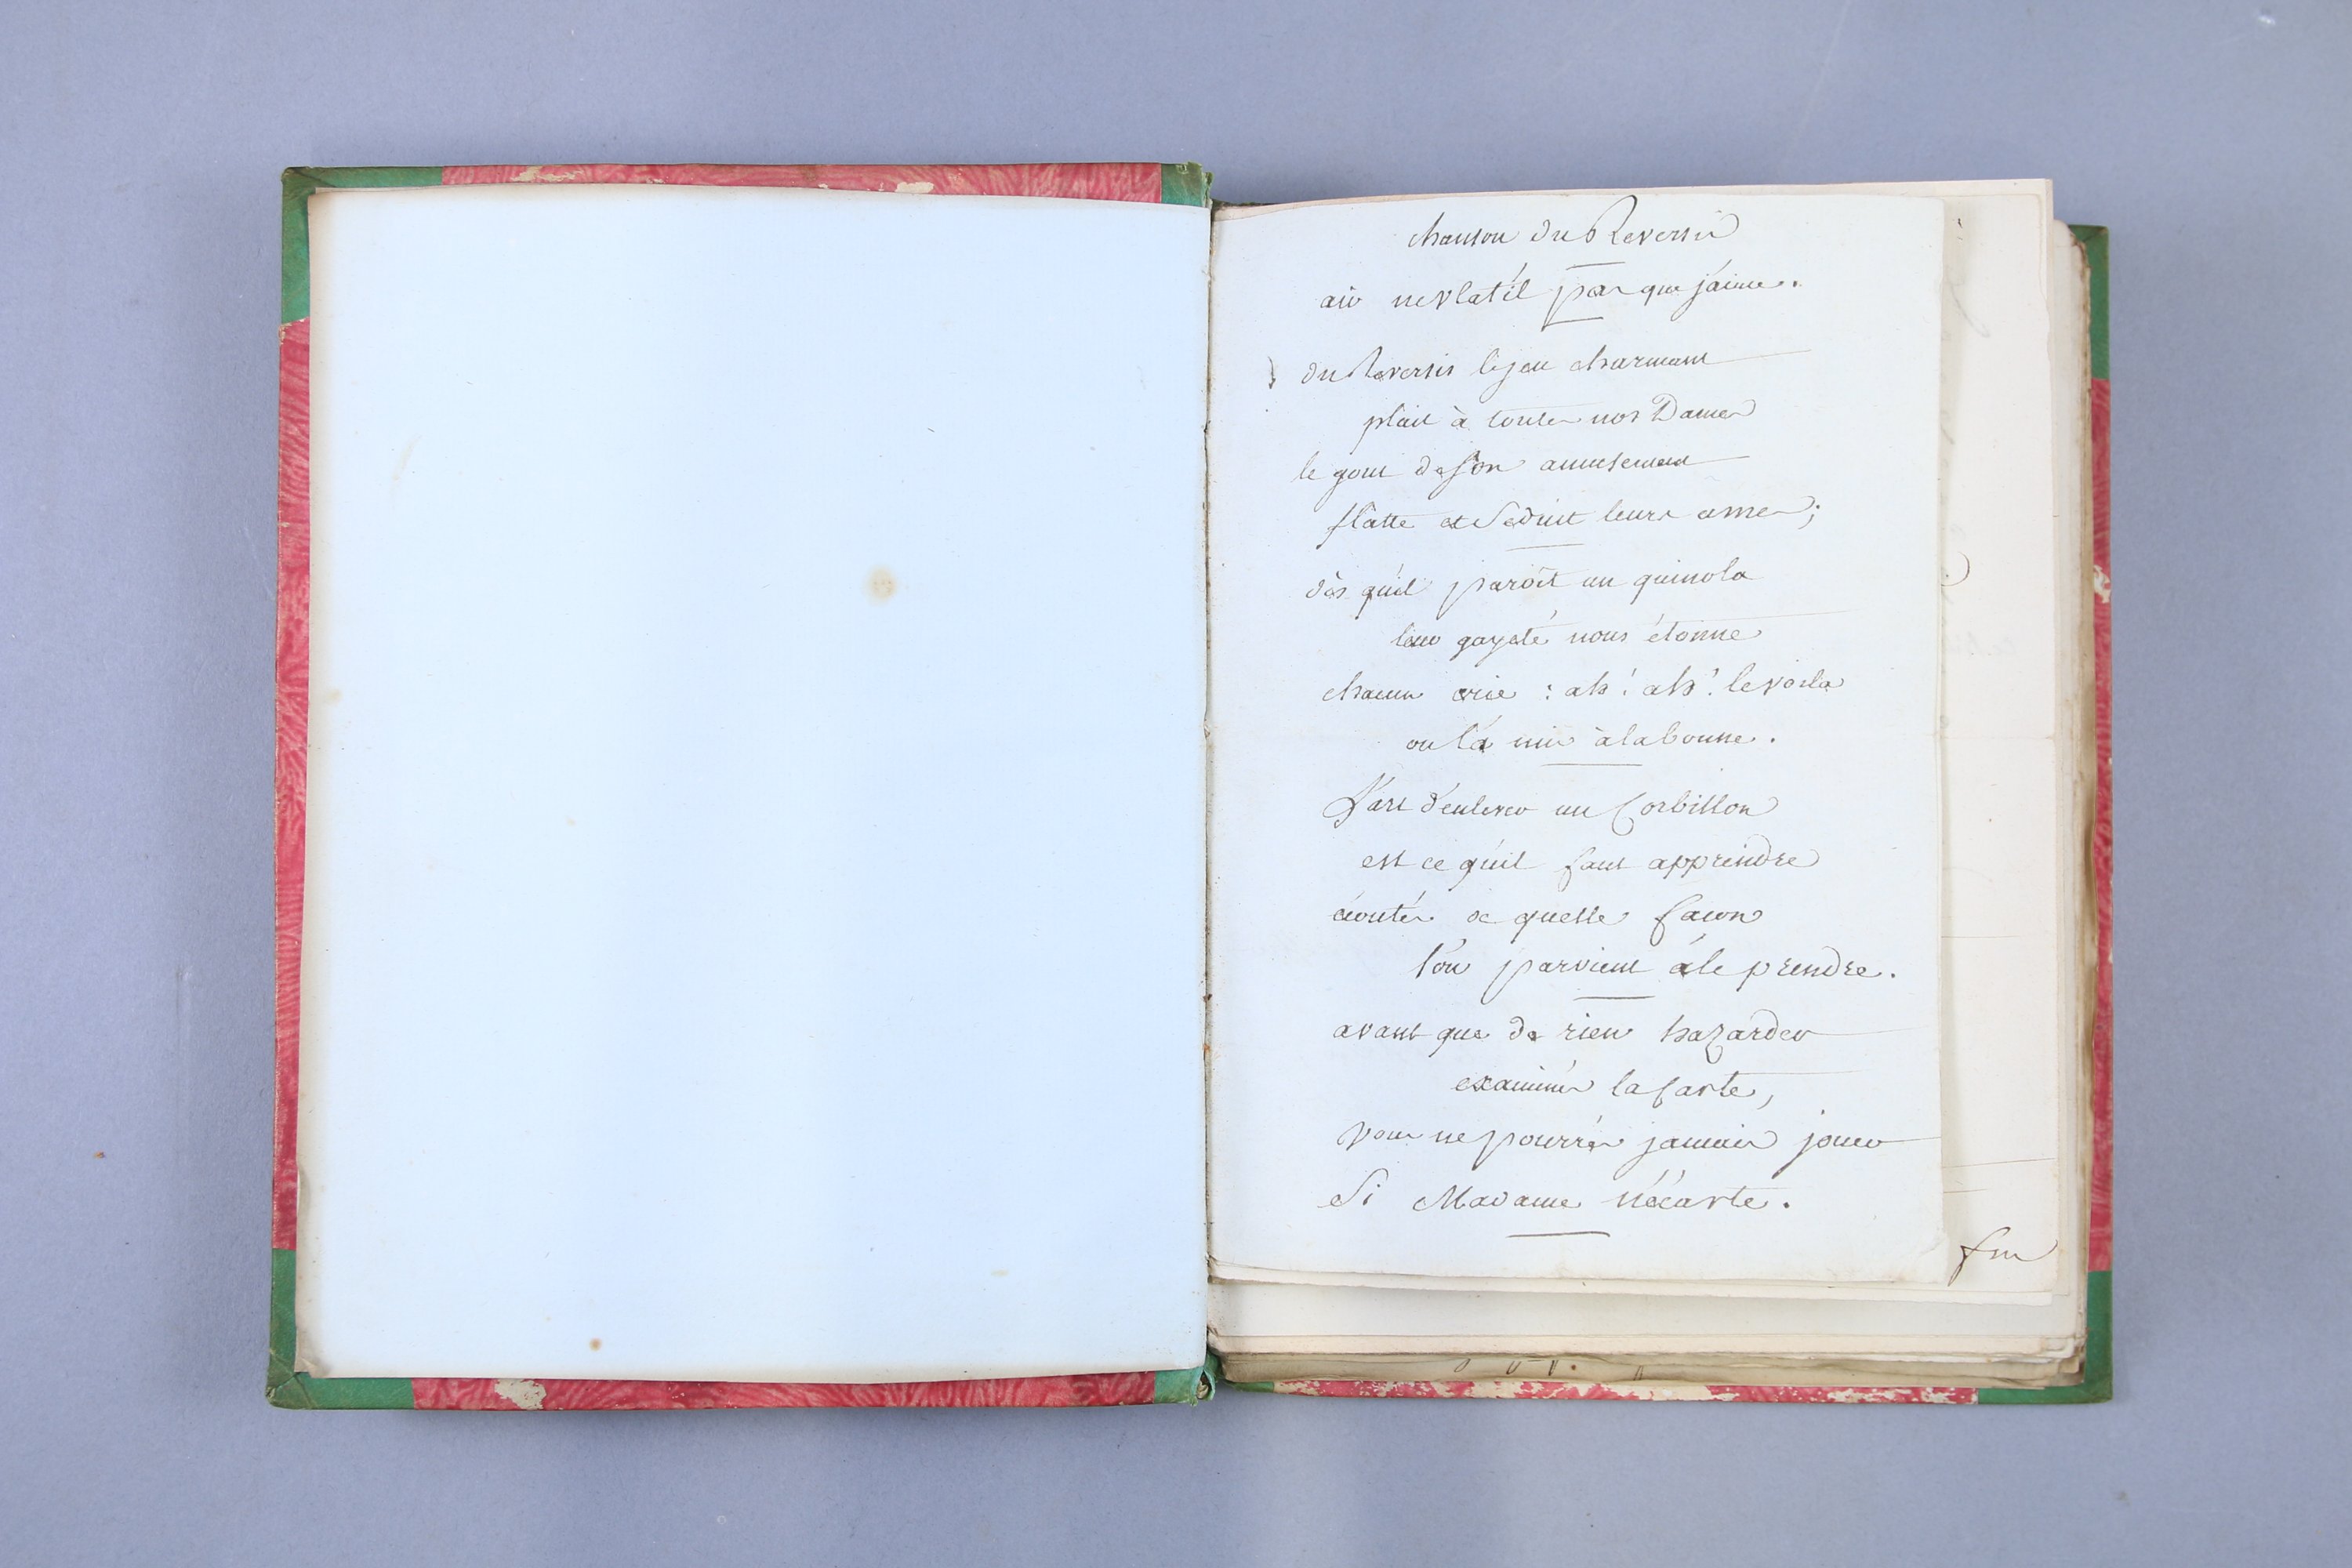 chanson du Reversis
air nevlatil pas que j'aime.
du Reversis le jeu charmant
plait à toutes nos Dames
le gout de son amusement
flâtte et Séduit leurs ames;
dès qu'il paroît un quinola
leur gayeté nous étonne
chacun crie : ah! ah! le voila
on l'a mis à la bonne.
L'art d'enlever un Corbillon
est ce qu'il faut apprendre
écoutés de quelle facon
l'on parvient à le prendre.
avant que de rien hazarder
examinés la Carte,
vous ne pourrés jamais jouer
Si Madame n'écarte.
fin